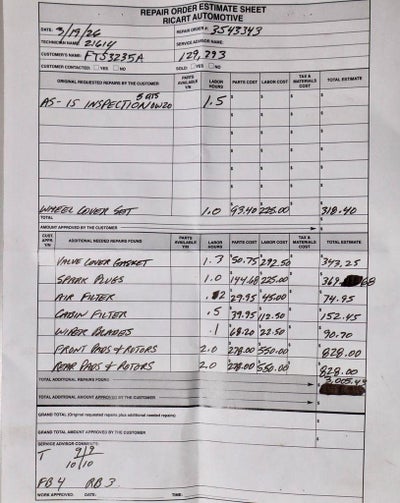 REPAIR ORDER ESTIMATE SHEET
RICART AUTOMOTIVE
DATE: 3/19/26 REPAIR ORDER #: 3543343
TECHNICIAN NAME: 21614 SERVICE ADVISOR NAME:
CUSTOMER'S NAME: FTS3235A 129,793
CUSTOMER CONTACTED: YES NO SOLD: YES NO
ORIGINAL REQUESTED REPAIRS BY THE CUSTOMER PARTS AVAILABLE Y/N LABOR HOURS PARTS COST LABOR COST TAX & MATERIALS COST TOTAL ESTIMATE
5 QTS
AS-IS INSPECTION 0W20 1.5 $ $ $ $
WHEEL COVER SET 1.0 93.40 225.00 318.40
TOTAL
AMOUNT APPROVED BY THE CUSTOMER
CUST. APPR. Y/N ADDITIONAL NEEDED REPAIRS FOUND PARTS AVAILABLE Y/N LABOR HOURS PARTS COST LABOR COST TAX & MATERIALS COST TOTAL ESTIMATE
VALVE COVER GASKET 1.3 $50.75 $292.50 $ $343.25
SPARK PLUGS 1.0 144.68 225.00 369.68
AIR FILTER .2 29.95 45.00 74.95
CABIN FILTER .5 39.95 112.50 152.45
WIPER BLADES .1 68.20 22.50 90.70
FRONT PADS & ROTORS 2.0 278.00 550.00 828.00
REAR PADS & ROTORS 2.0 278.00 550.00 828.00
TOTAL ADDITIONAL REPAIRS FOUND 3,005.43
TOTAL ADDITIONAL AMOUNT APPROVED BY THE CUSTOMER
GRAND TOTAL (Original requested repairs plus additional needed repairs)
GRAND TOTAL AMOUNT APPROVED BY THE CUSTOMER
SERVICE ADVISOR COMMENTS:
T 9/9
10/10
FB 4 RB 3
WORK APPROVED: DATE: TIME: